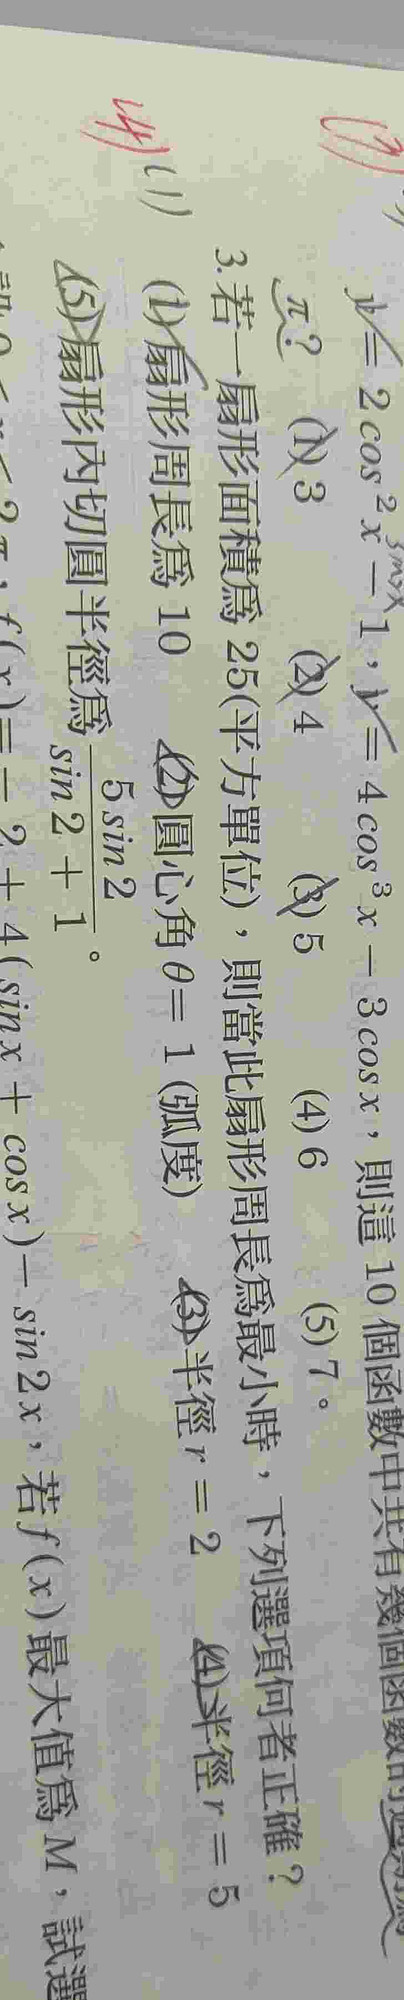 y = 2cos²x − 1，y = 4cos³x − 3cosx，則這 10 個函數中共有幾個函數的週期為
π? (1) 3 (2) 4 (3) 5 (4) 6 (5) 7。
3.若一扇形面積為 25(平方單位)，則當此扇形周長為最小時，下列選項何者正確？
(4) (1) (1)扇形周長為 10 (2)圓心角θ= 1 (弧度) (3)半徑 r = 2 (4)半徑 r = 5
(5)扇形內切圓半徑為 5 sin 2 / sin 2 + 1 。
f(x) = − 2 + 4(sinx + cosx) − sin2x，若 f(x)最大值為 M，試選